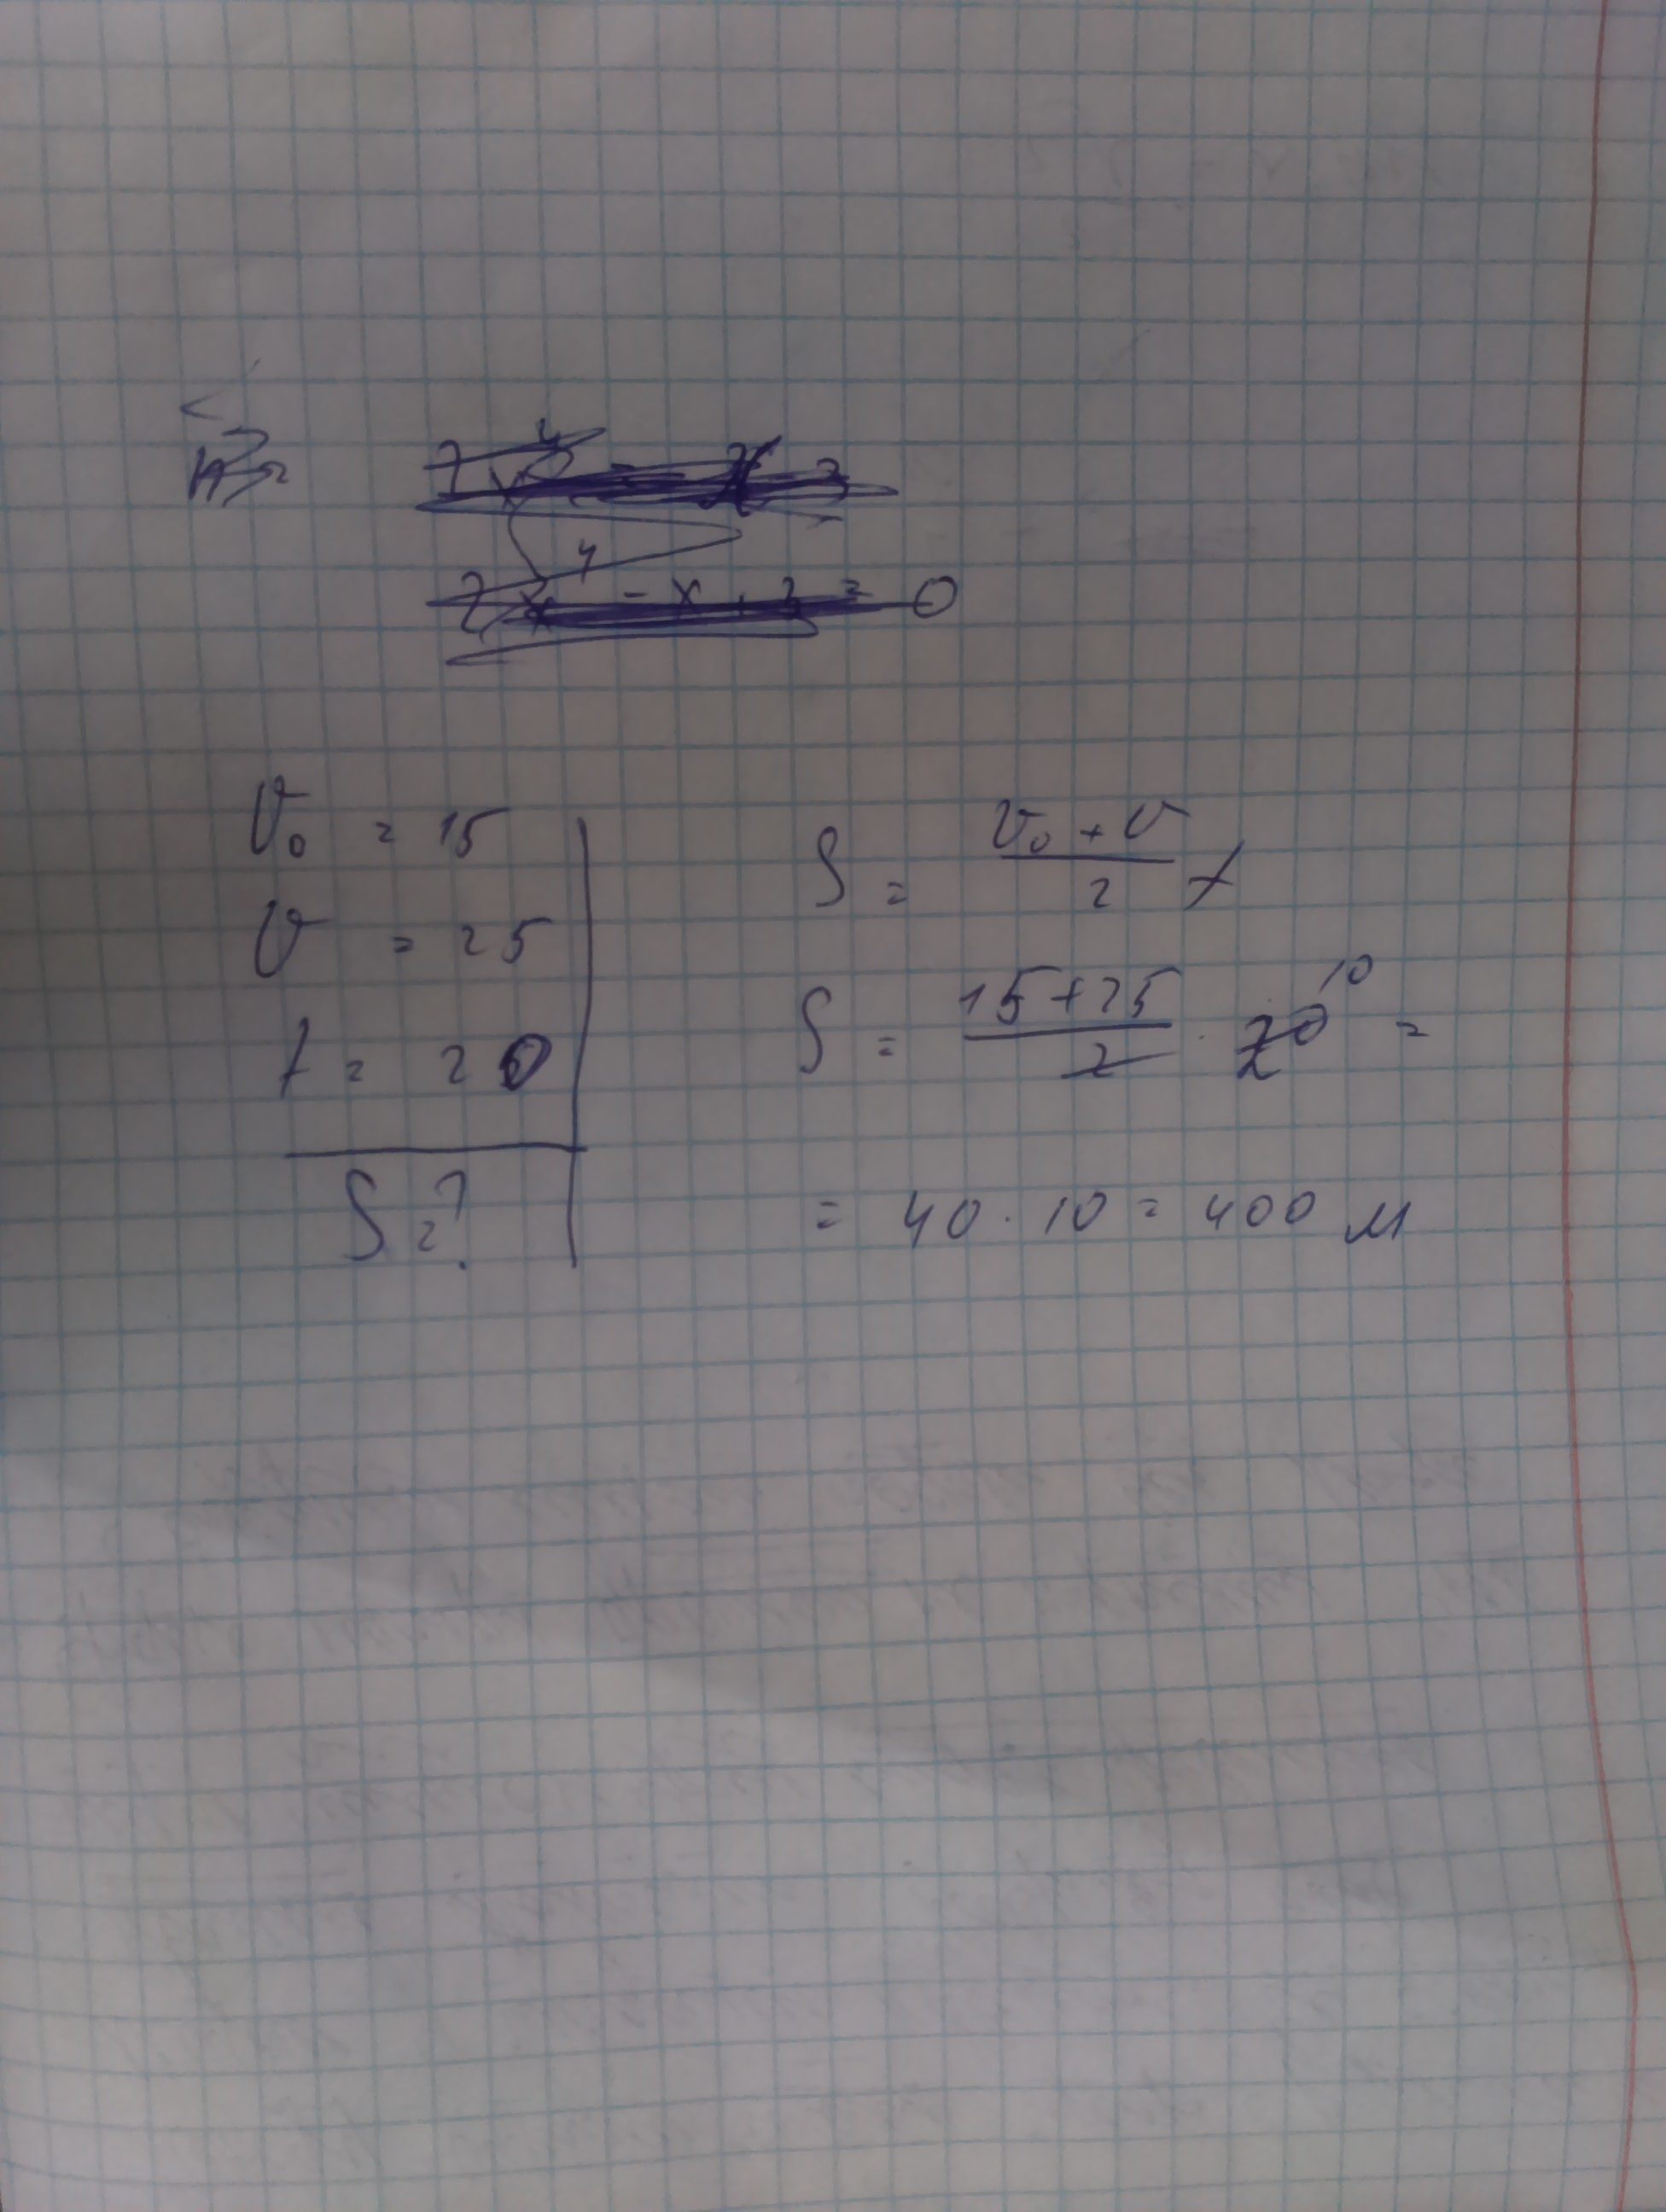 V₀ = 15
V = 25
t = 20
S = ?
S = (V₀ + V)/2 t
S = (15 + 25)/2 · 20 10 =
= 40 · 10 = 400 м